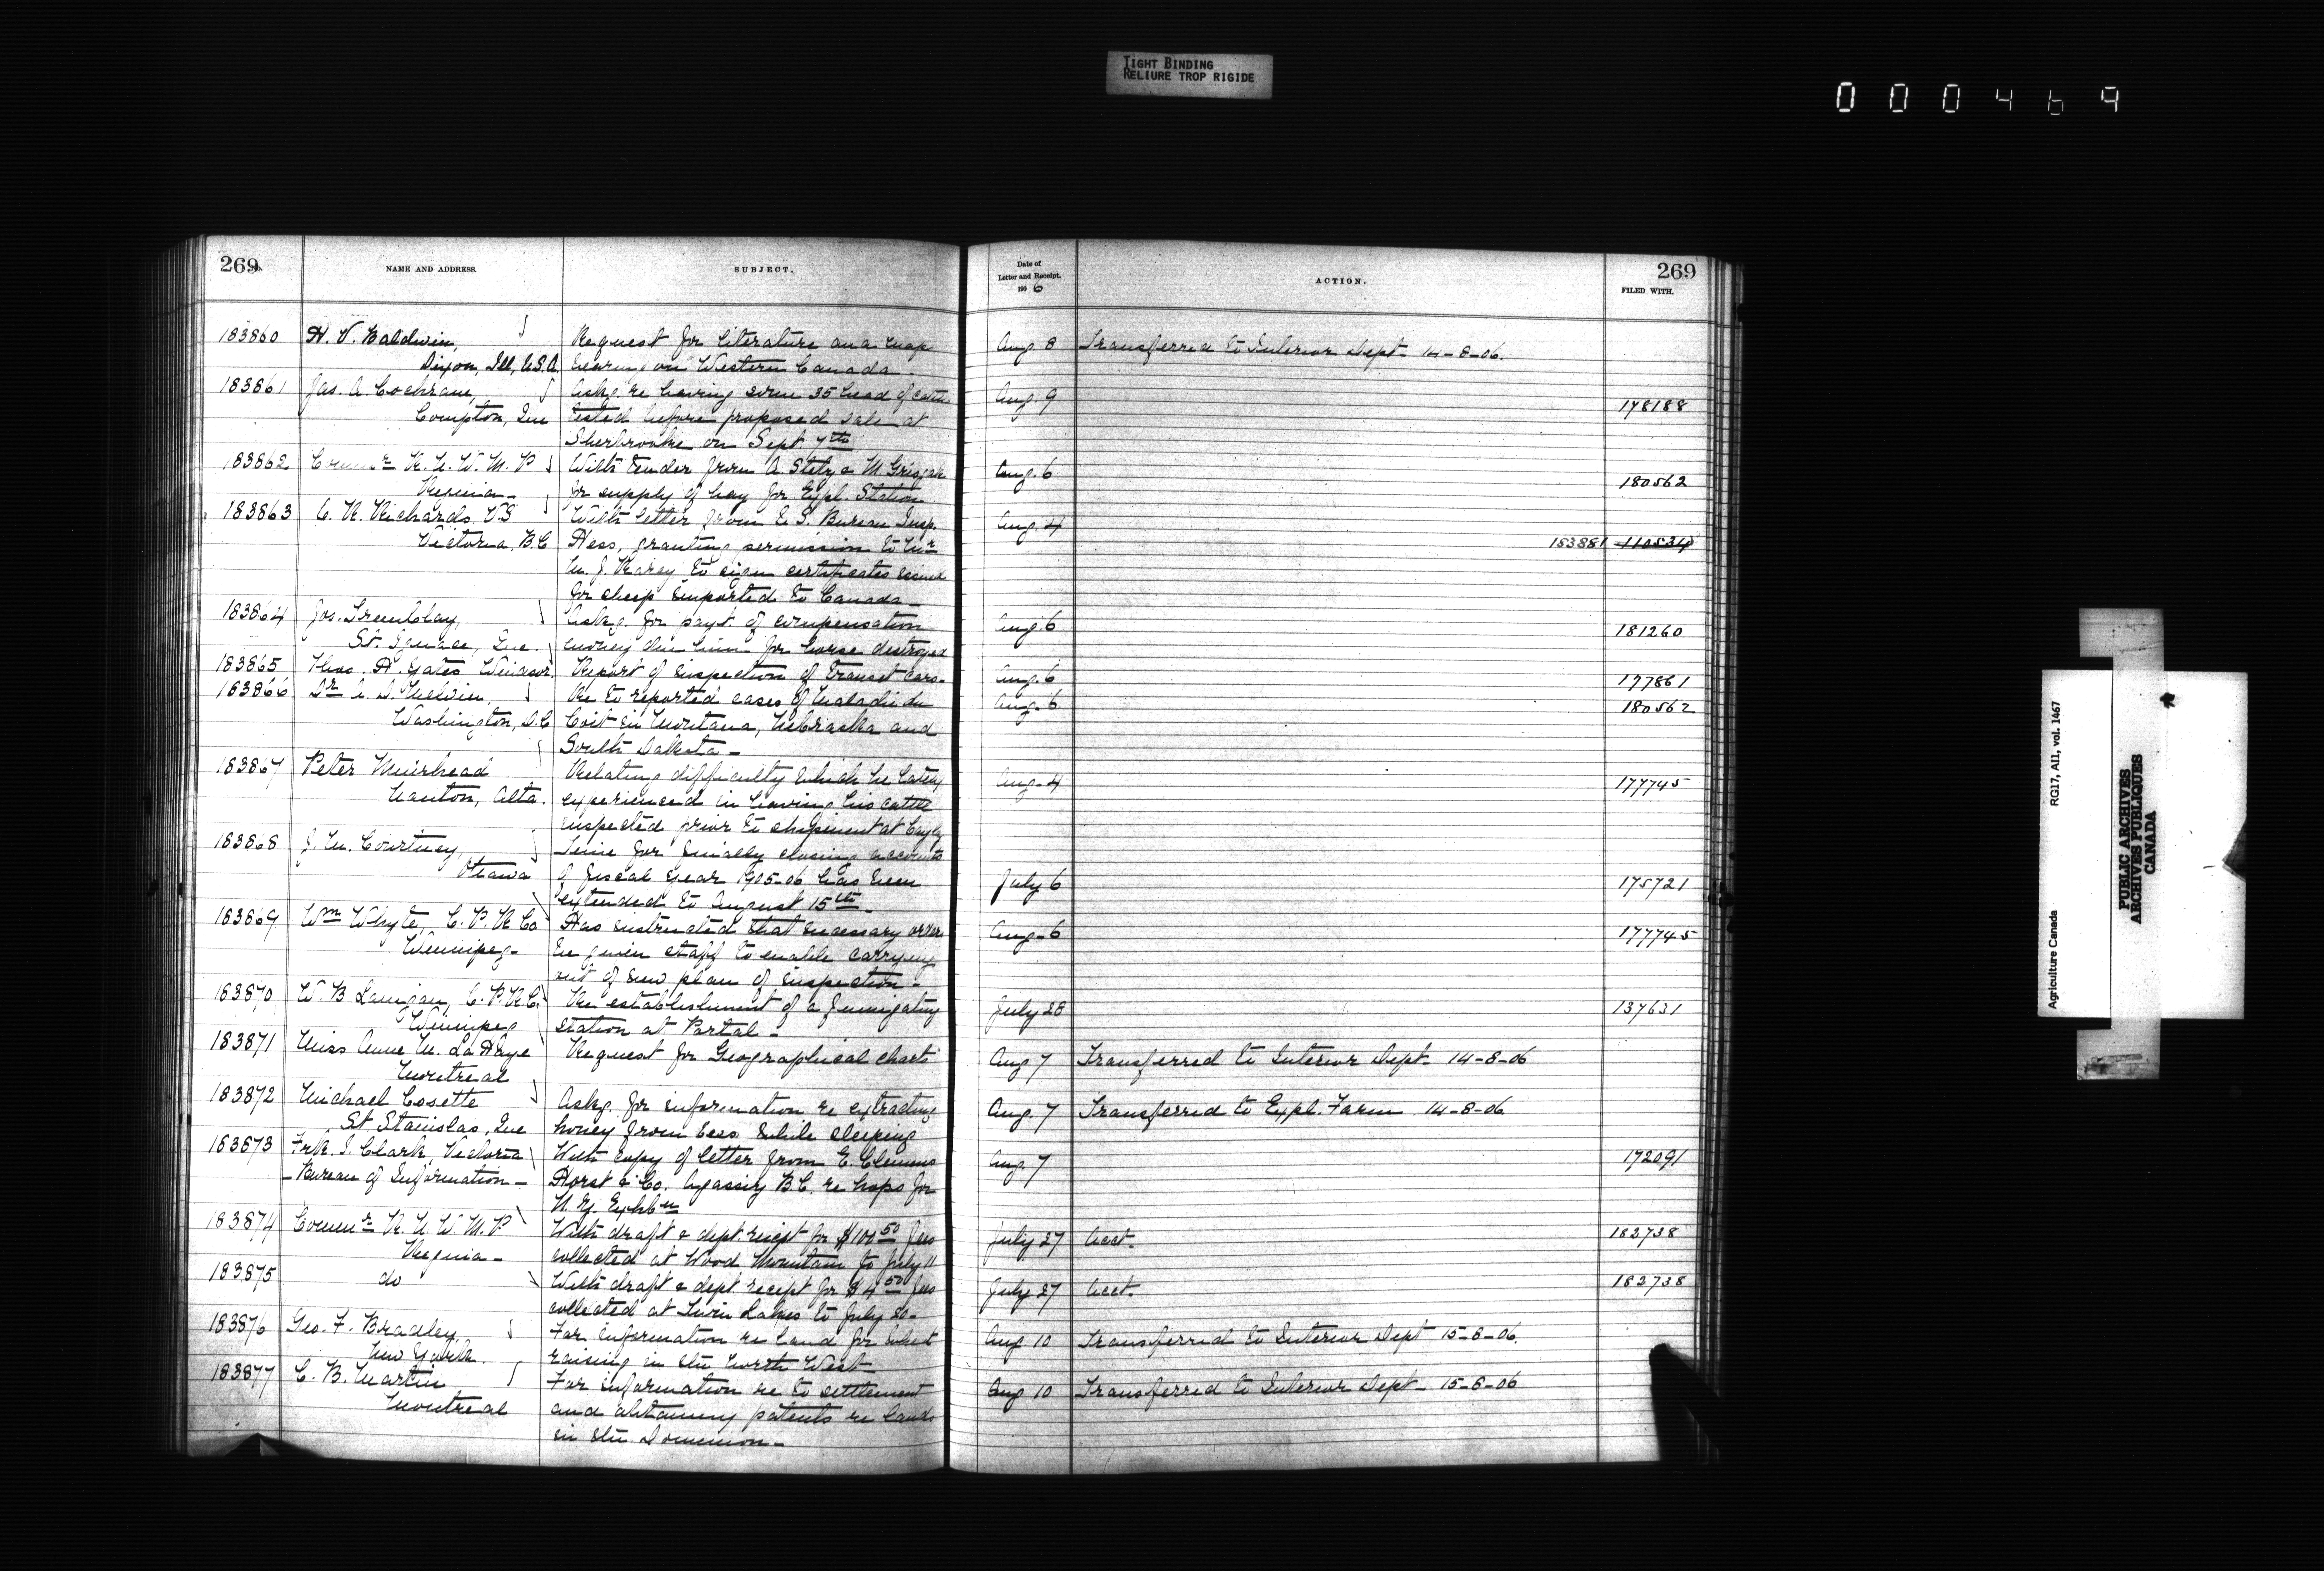 TIGHT BINDING
RELIURE TROP RIGIDE
000469
269
No.
NAME AND ADDRESS.
SUBJECT.
183860 H. V. Baldwin, Request for literature and map
Dixon, Ill, U.S.A. bearing on Western Canada.
183861 Jas. A. Cochrane, Askg. re having some 35 head of cattle
Compton, Que tested before proposed sale at
Sherbrooke on Sept. 7th
183862 Commr R. N. W. M. P With tender from A. & M.
Regina for supply of hay for Expl. Station
183863 C. R. Richards, VS With letter from U. S. Bureau Insp.
Victoria, B.C Hess, granting permission to Mr
M. J. to sign certificates
for sheep imported to Canada
183864 Jos. Tremblay, Askg. for payt. of compensation
St. Ignace, Que. money due him for horse destroyed
183865 Thos. H. Yates Windsor Report of inspection of transit cars.
183866 Dr A. D. Melvin, Re to reported cases of Maladie du
Washington, D.C Coit in Montana, Nebraska and
South Dakota
183867 Peter Muirhead Relating difficulty which he lately
Nanton, Alta. experienced in having his cattle
inspected prior to shipment at Cayley
183868 J. M. Courtney, Time for finally closing accounts
Ottawa of fiscal year 1905-06 has been
extended to August 15th
183869 Wm Whyte, C. P. R Co Has instructed that necessary orders
Winnipeg be given staff to enable carrying
out of new plan of inspection
183870 W. B Lanigan, C. P. R. C. Re establishment of a fumigating
Winnipeg station at Portal
183871 Miss Anne M. La Request for Geographical charts
Montreal
183872 Michael Cosette Askg. for information re extracting
St. Stanislas, Que honey from bees while sleeping
183873 Frk. I. Clark, Victoria With copy of letter from E. Clemens
Bureau of Information Horst & Co. Agassiz B.C. re hops for
N. Z. Exhbn
183874 Commr R. N W. M. P With draft & dept. receipt for $100.50 fees
Regina collected at Wood Mountain to July 11
183875 do With draft & dept receipt for $4.50 fees
collected at Twin Lakes to July 20
183876 Geo. F. Bradley, For information re land for wheat
New York. raising in the North West
183877 C. B. Martin For information re to settlement
Montreal and obtaining patents re lands
in the Dominion
Date of
Letter and Receipt.
1906
ACTION.
269
FILED WITH.
Aug. 8 Transferred to Interior Dept 14-8-06.
Aug. 9 178188
Aug. 6 180562
Aug. 4 183881 110534
Aug. 6 181260
Aug. 6 177861
Aug. 6 180562
Aug. 4 177745
July 6 175721
Aug. 6 177745
July 28 137631
Aug 7 Transferred to Interior Dept 14-8-06
Aug. 7 Transferred to Expl. Farm 14-8-06
Aug. 7 172091
July 27 Acct. 183738
July 27 Acct. 183738
Aug 10 Transferred to Interior Dept 15-8-06.
Aug 10 Transferred to Interior Dept 15-8-06
Agriculture Canada RG17, AII, vol. 1467
PUBLIC ARCHIVES
ARCHIVES PUBLIQUES
CANADA